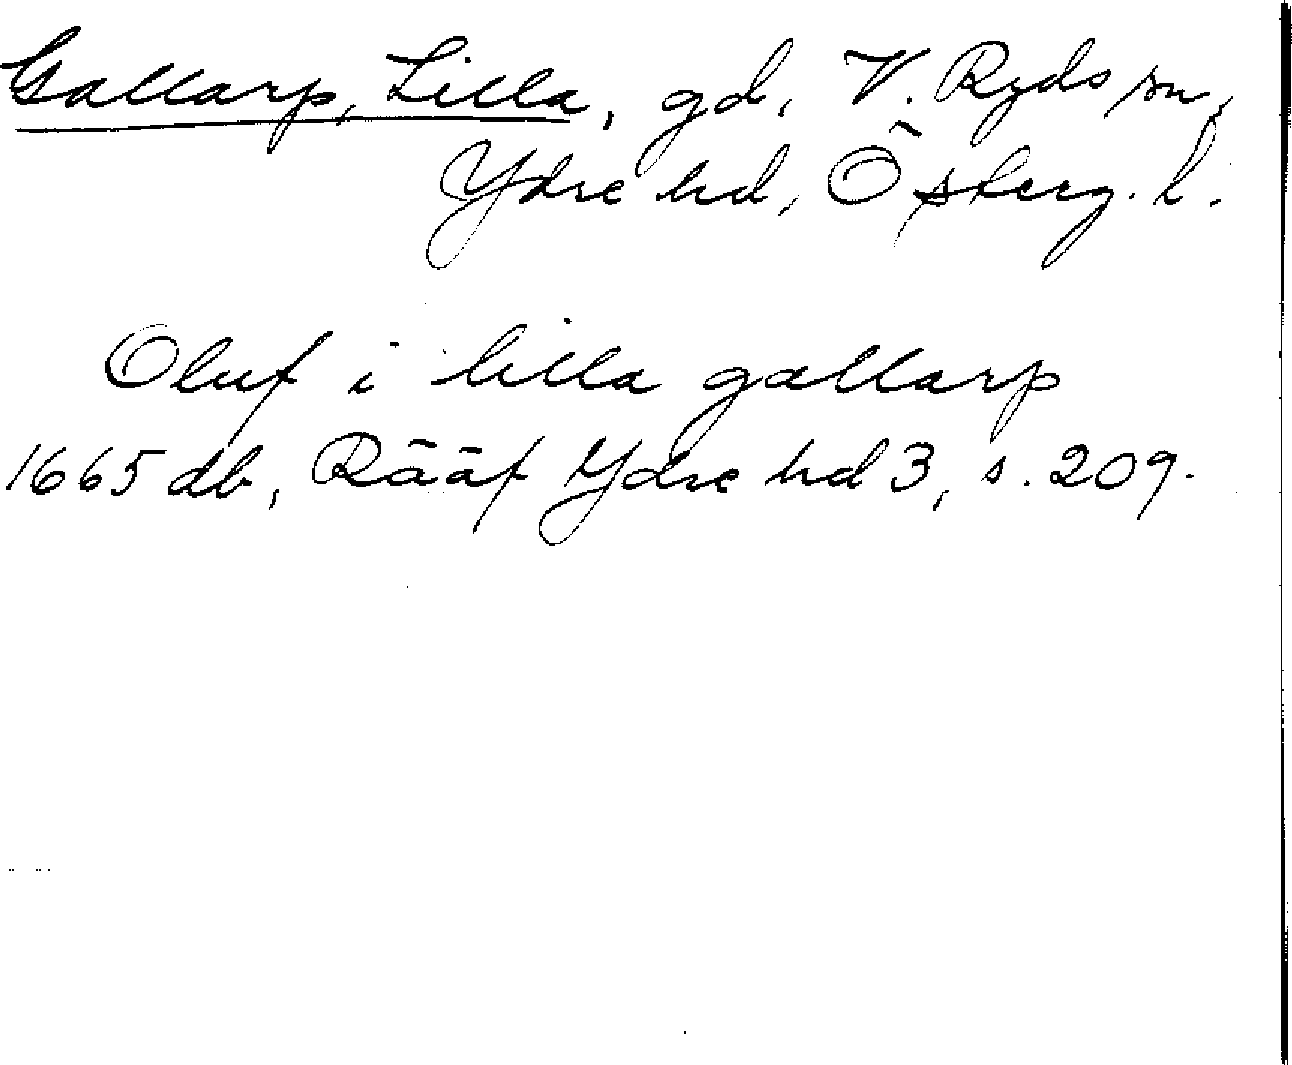 Gallarp, Lilla, gd, V. Ryds sn,
Ydre hd, Österg. l.
Oluf i lilla gallarp
1665 db, Rääf Ydre hd 3, s. 209.